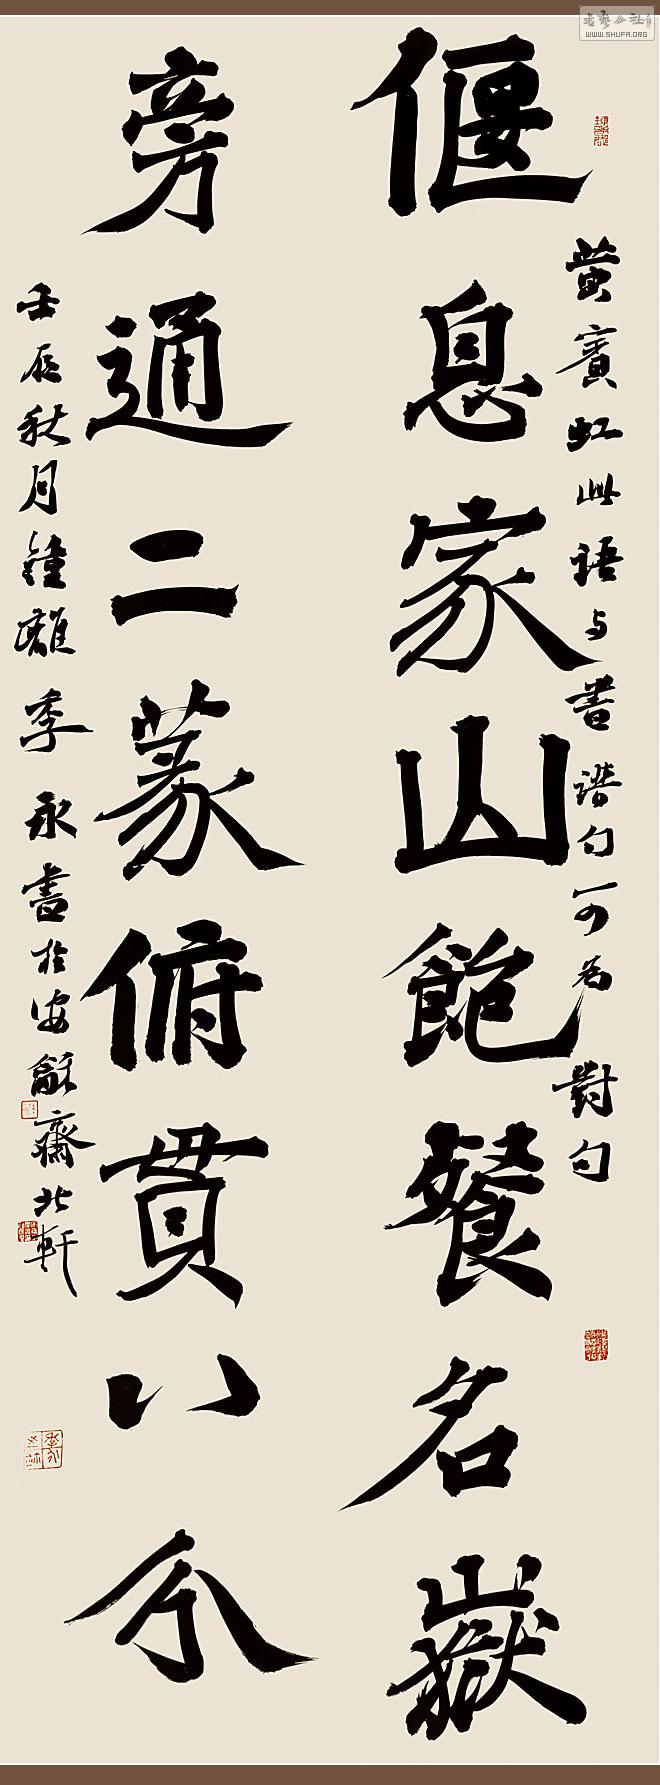 偃息家山飽餐名嶽
旁通二篆俯貫八分
黄賓虹此語与書譜句可為對句
壬辰秋月鍾離季永書於安龢齋北軒
書藝公社
WWW.SHUFA.ORG